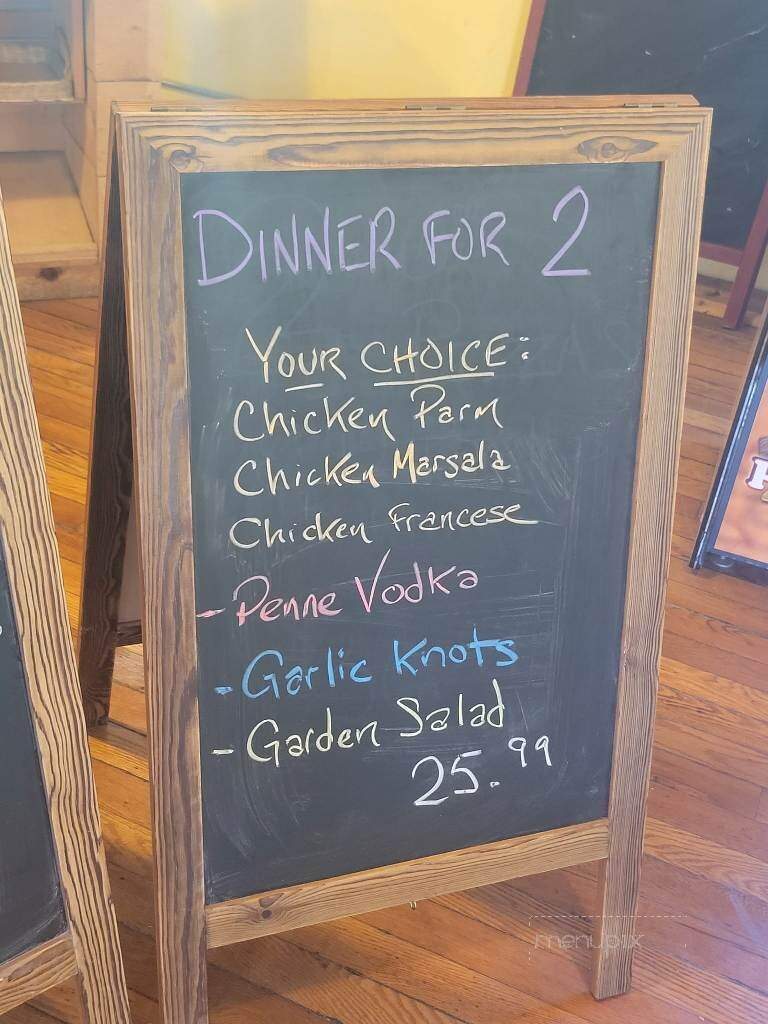 DINNER FOR 2
YOUR CHOICE:
Chicken Parm
Chicken Marsala
Chicken Francese
- Penne Vodka
- Garlic Knots
- Garden Salad
25.99
menupix